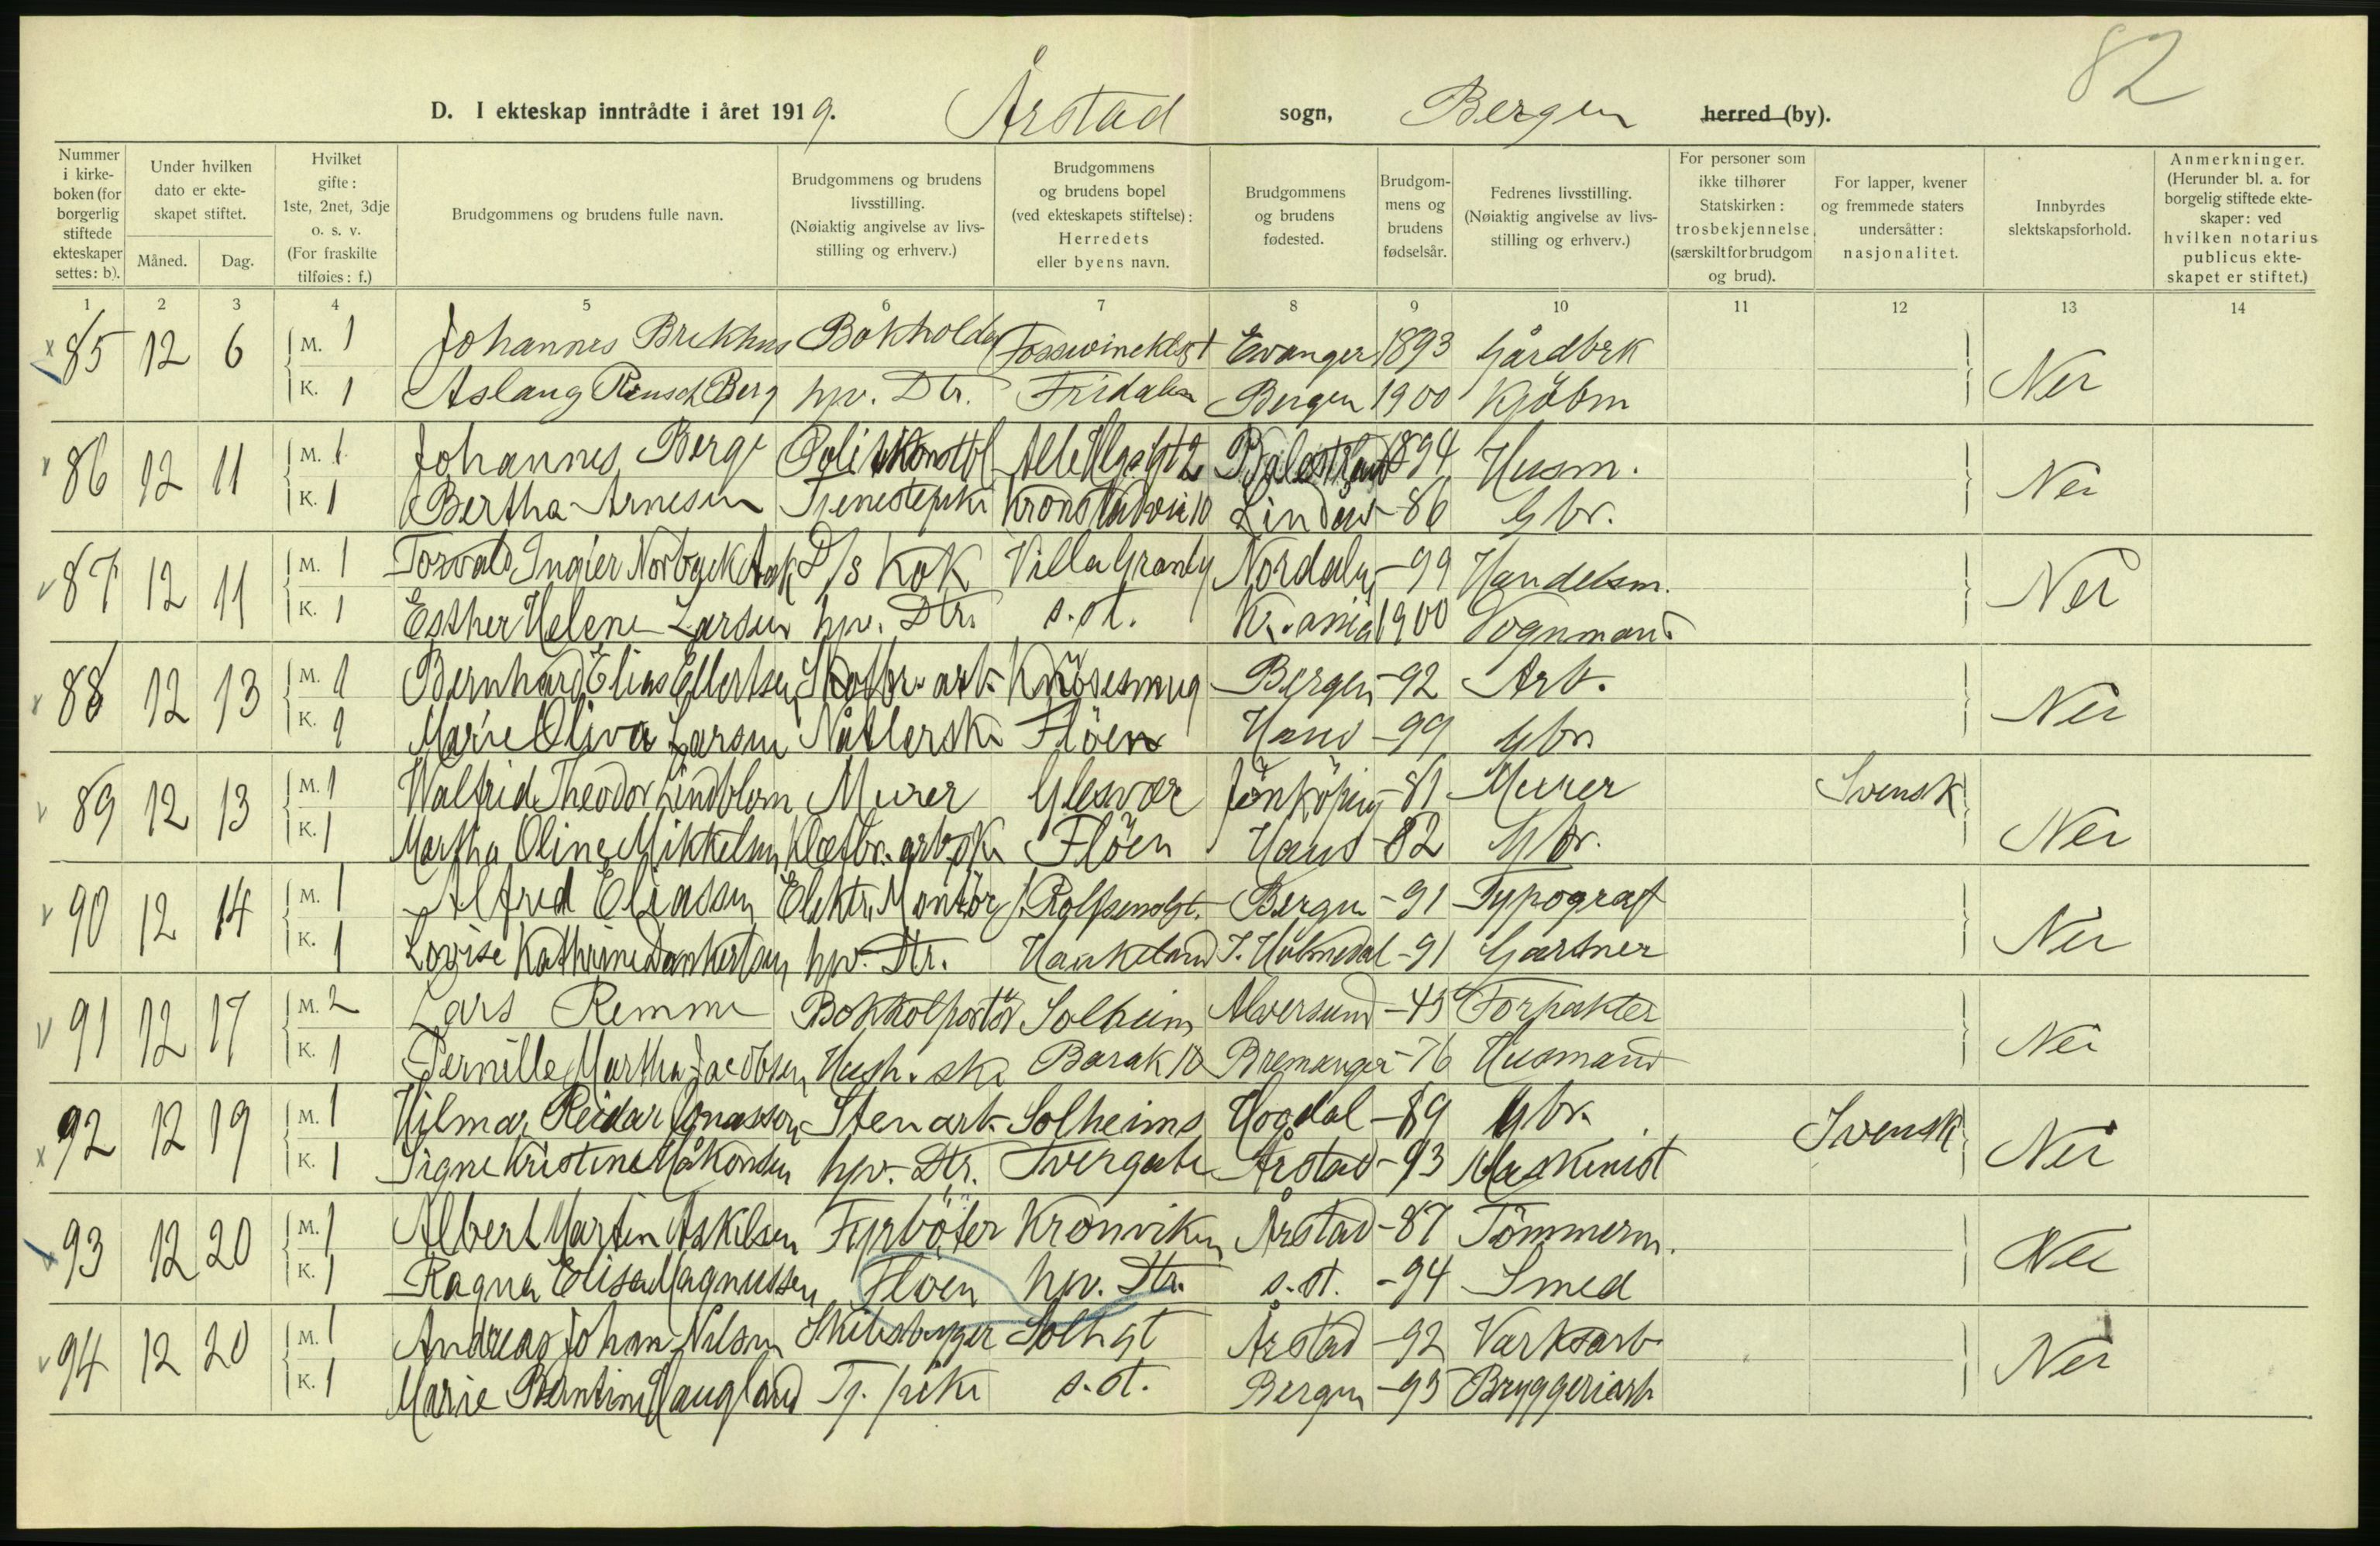 82
D. I ekteskap inntrådte i året 1919. Årstad sogn, Bergen herred (by).
Nummer i kirkeboken (for borgerlig stiftede ekteskaper settes: b).
Under hvilken dato er ekteskapet stiftet.
Måned. Dag.
Hvilket gifte: 1ste, 2net, 3dje o. s. v. (For fraskilte tilføies: f.)
Brudgommens og brudens fulle navn.
Brudgommens og brudens livsstilling. (Nøiaktig angivelse av livsstilling og erhverv.)
Brudgommens og brudens bopel (ved ekteskapets stiftelse): Herredets eller byens navn.
Brudgommens og brudens fødested.
Brudgommens og brudens fødselsår.
Fedrenes livsstilling. (Nøiaktig angivelse av livsstilling og erhverv.)
For personer som ikke tilhører Statskirken: trosbekjennelse. (særskilt for brudgom og brud).
For lapper, kvener og fremmede staters undersåtter: nasjonalitet.
Innbyrdes slektskapsforhold.
Anmerkninger. (Herunder bl. a. for borgelig stiftede ekteskaper: ved hvilken notarius publicus ekteskapet er stiftet.)
1 2 3 4 5 6 7 8 9 10 11 12 13 14
85 12 6 M. 1 Johannes Brekhus Bokholder Evanger 1893 Gårdbrk Nei
K. 1 Aslaug Rensch Berg hjv. Dtr. Fridalen Bergen 1900 Kjöbm
86 12 11 M. 1 Johannes Berge Politikonstbl Balestrand 1894 Husm. Nei
K. 1 Bertha Arnesen Tjenestepike Kronstadvei 10 Lindås -86 Gbr.
87 12 11 M. 1 Torvald Ingier D/s Kok Villa Granly Nordalen -99 Handelsm. Nei
K. 1 Esther Helene Larsen hjv. Dtr. s. st. Kr.ania 1900 Vognmand
88 12 13 M. 1 Bernhard Elias Ellertsen Skofbr. arb. Knösesmug Bergen -92 Arb. Nei
K. 1 Marie Oliva Larsen Nåtlerske Flöen Haus -99 Gbr.
89 12 13 M. 1 Walfrid Theodor Lindblom Murer Glesvær Jönköping -81 Murer Svensk Nei
K. 1 Martha Oline Mikkelsen Klæfbr. arb.ske Flöen Haus -82 Gbr.
90 12 14 M. 1 Alfred Eliassen Elektr. Montör J. Rolfsensgt. Bergen -91 Typograf Nei
K. 1 Lovise Kathrine Dankertsen hjv. Dtr. Haukeland I. Holmedal -91 Gartner
91 12 17 M. 2 Lars Remme Bokkolportör Solheim Alversund -45 Forpakter Nei
K. 1 Pernille Martha Jacobsen Hush. ske Barak 10 Bremanger -76 Husmand
92 12 19 M. 1 Hilmar Reidar Jonasson Stenarb. Solheims Hogdal -89 Gbr. Svensk Nei
K. 1 Signe Kristine Håkonsen hjv. Dtr. Tvergate Årstad -93 Maskinist
93 12 20 M. 1 Albert Martin Askilsen Fyrböter Kronviken Årstad -87 Tömmerm. Nei
K. 1 Ragna Elisa Magnussen Flöen hjv. Dtr. s. st. -94 Smed
94 12 20 M. 1 Andreas Johan Nilsen Skibsbygger Solhgt Årstad -92 Verksarb. Nei
K. 1 Marie Berntine Haugland Tj. pike s. st. Bergen -95 Bryggeriarb